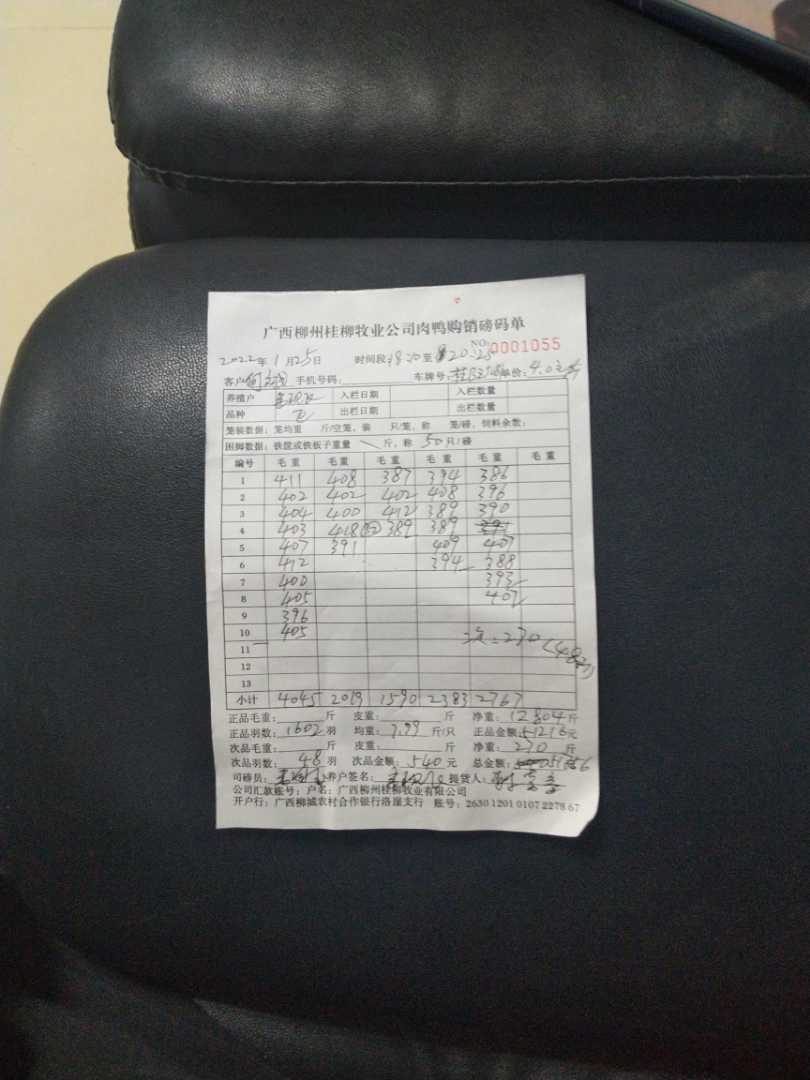 广西柳州桂柳牧业公司肉鸭购销磅码单
NO: 0001055
2022年1月25日 时间段: 至 20:25
客户 手机号码: 车牌号: 单价: 4.0元/斤
养殖户 入栏日期 入栏数量
品种 出栏日期 出栏数量
笼装数据: 笼均重 斤/空笼, 装 只/笼, 称 笼/磅, 饲料余数:
困脚数据: 铁筐或铁板子重量 斤, 称 50 只/磅
编号 毛重 毛重 毛重 毛重 毛重 毛重
1 411 408 387 394 386
2 402 402 402 408 396
3 404 400 412 389 390
4 403 418 389 389
5 407 391 409 407
6 412 394 388
7 400 393
8 405 407
9 396
10 405 次: 270 (48只)
11
12
13
小计 4045 2019 1590 2383 2767
正品毛重: 斤 皮重: 斤 净重: 12804斤
正品羽数: 1602羽 均重: 7.99斤/只 正品金额: 51216元
次品毛重: 斤 皮重: 斤 净重: 270斤
次品羽数: 48羽 次品金额: 540元 总金额: 51756
司磅员: 养户签名: 提货人:
公司汇款账号: 户名: 广西柳州桂柳牧业有限公司
开户行: 广西柳城农村合作银行洛崖支行 账号: 2630 1201 0107 2278 67